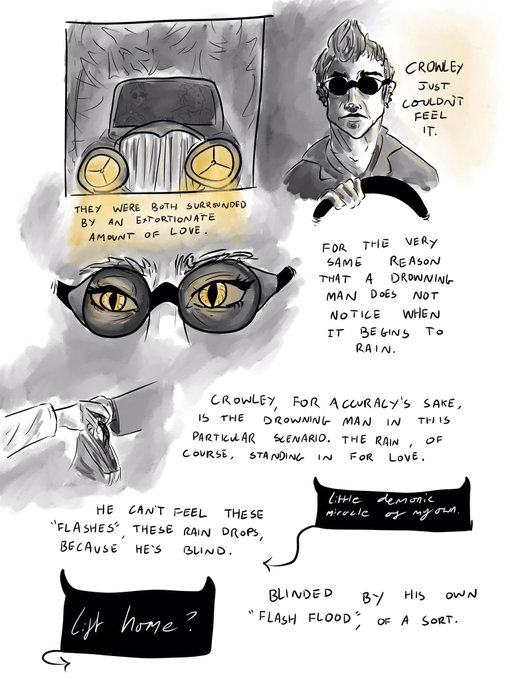 CROWLEY
JUST
COULDN'T
FEEL
IT.
THEY WERE BOTH SURROUNDED
BY AN EXTORTIONATE
AMOUNT OF LOVE.
FOR THE VERY
SAME REASON
THAT A DROWNING
MAN DOES NOT
NOTICE WHEN
IT BEGINS TO
RAIN.
CROWLEY, FOR ACCURALY'S SAKE,
IS THE DROWNING MAN IN THIS
PARTICULAR SCENARIO. THE RAIN, OF
COURSE, STANDING IN FOR LOVE.
little demonic
miracle of my own.
HE CAN'T FEEL THESE
"FLASHES", THESE RAIN DROPS,
BECAUSE HE'S BLIND.
lift home?
BLINDED BY HIS OWN
"FLASH FLOOD", OF A SORT.